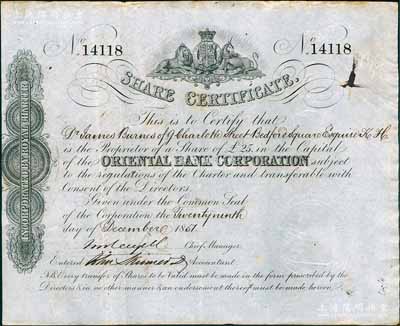 No. 14118
No. 14118
SHARE CERTIFICATE.
This is to Certify that
Dr. James Burnes of 9 Charlotte Street Bedford Square Esquire K.H.
is the Proprietor of a Share of £25, in the Capital
of the ORIENTAL BANK CORPORATION subject
to the regulations of the Charter and transferable with
Consent of the Directors.
Given under the Common Seal
of the Corporation the Twentyninth
day of December 1861.
Chief Manager
Entered Accountant
N.B. Every transfer of Shares to be Valid must be made in the form prescribed by the
Directors & in no other manner & an endorsement thereof must be made hereon.
INCORPORATED BY ROYAL CHARTER